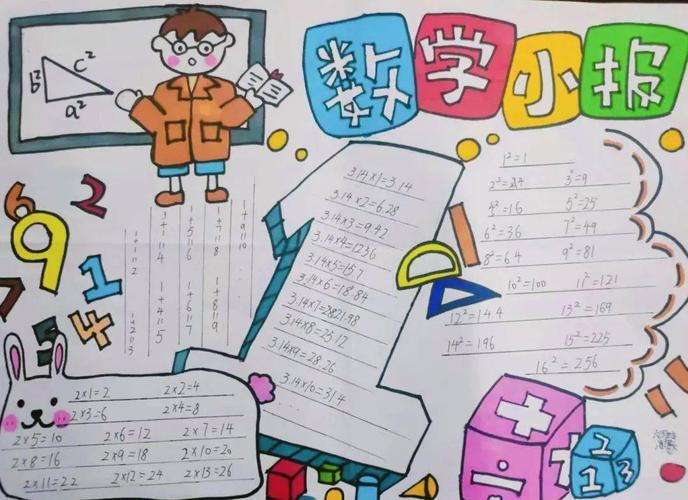 数学小报
b² c²
a²
6 2
9
1
7
5 4
1+1=2
1+2=3
3+1=4
1+4=5
1+5=6
1+6=7
1+7=8
1+8=9
1+9=10
3.14×1=3.14
3.14×2=6.28
3.14×3=9.42
3.14×4=1236
3.14×5=15.7
3.14×6=18.84
3.14×7=2821.98
3.14×8=25.12
3.14×9=28.26
3.14×10=31.4
1²=1
2²=4 3²=9
4²=16 5²=25
6²=36 7²=49
8²=64 9²=81
10²=100 11²=121
12²=144 13²=169
14²=196 15²=225
16²=256
2×1=2 2×2=4
2×3=6 2×4=8
2×5=10 2×6=12 2×7=14
2×8=16 2×9=18 2×10=20
2×11=22 2×12=24 2×13=26
+
÷
2
1 3